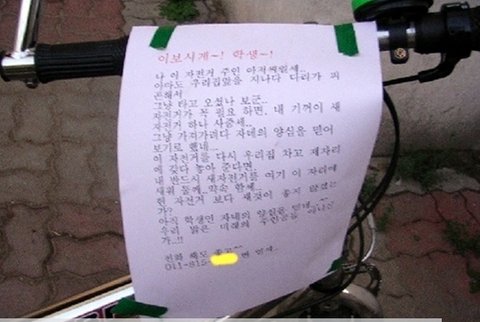 이보시게~! 학생~!
나 이 자전거 주인 아저씨일세..
아마도 우리집앞을 지나다 다리가 피
곤해서
그냥 타고 오셨나 보군..
자전거가 꼭 필요 하면, 내 기꺼이 새
자전거 하나 사줌세..
그냥 가져가려다 자네의 양심을 믿어
보기로 했네...
이 자전거를 다시 우리집 차고 제자리
에 갖다 놓아 준다면
내 반드시 새자전거를 여기 이 자리에
세워 둘께 약속 함세..
헌 자전거 보다 새것이 좋지 않겠는
가?
아직 학생인 자네의 양심을 믿네..
우리 밝은 미래의 주인공들
가..!!
전화 해도 좋고^^
011-815-